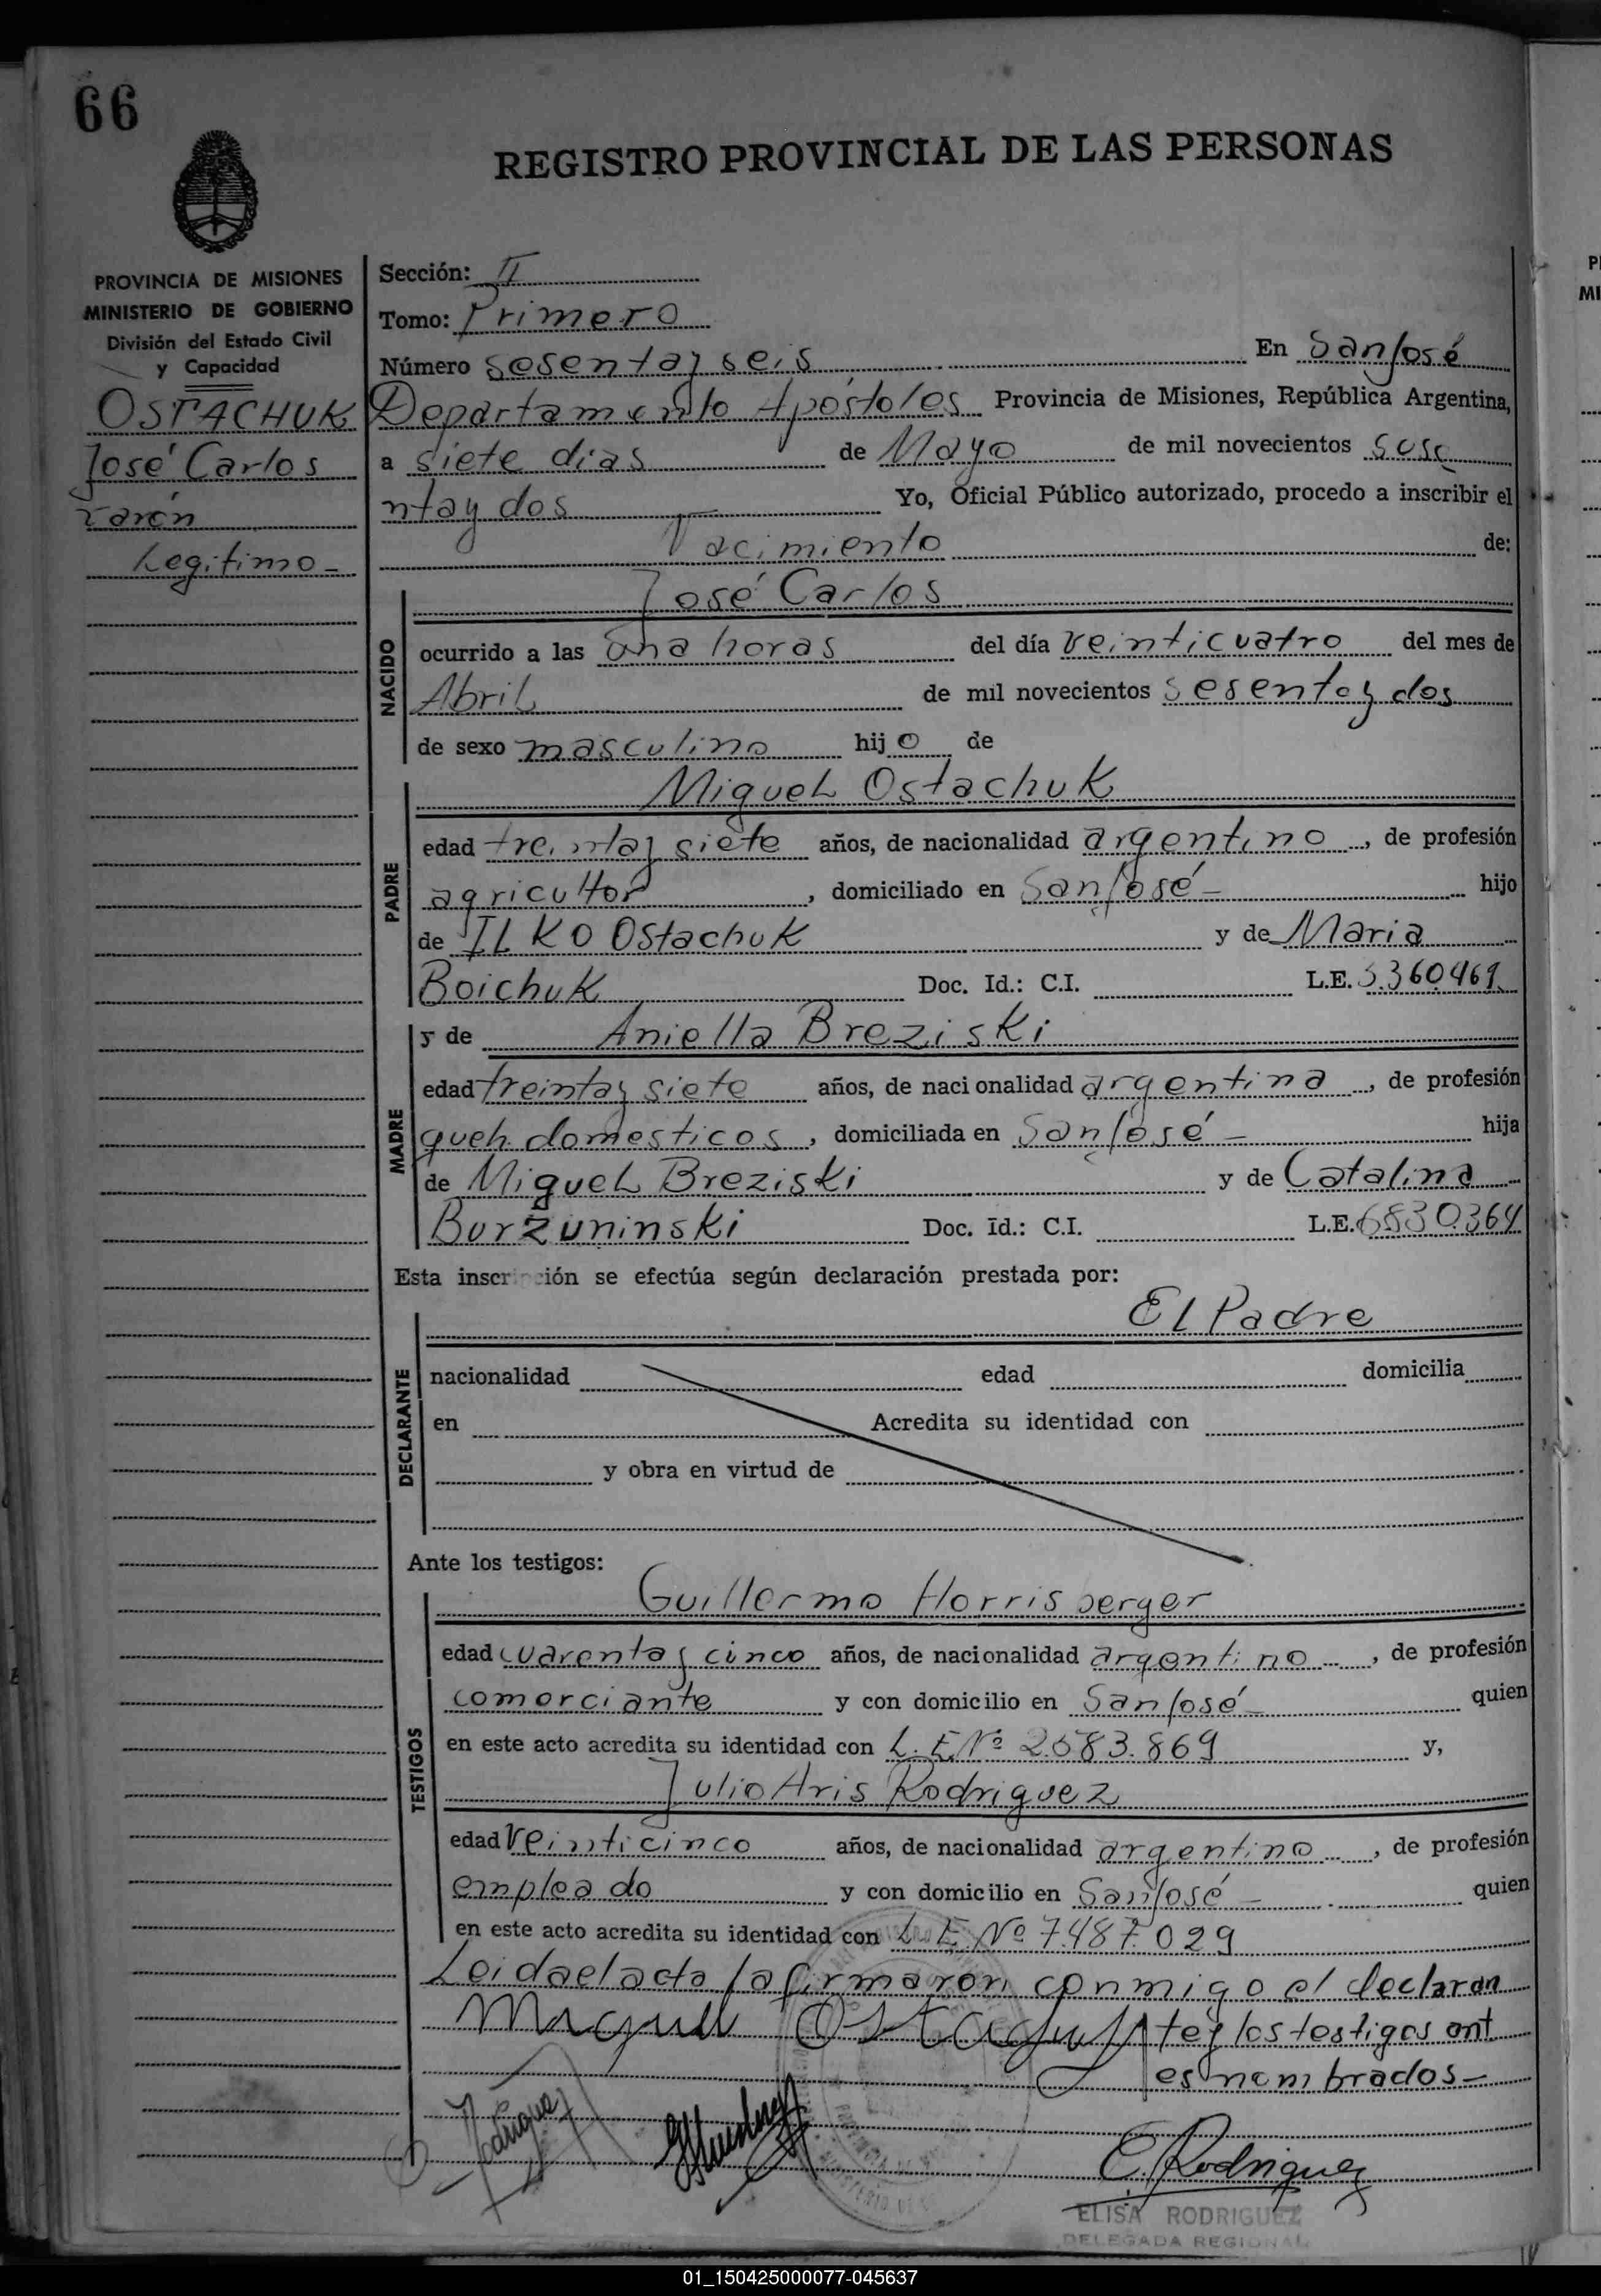 66
REGISTRO PROVINCIAL DE LAS PERSONAS
PROVINCIA DE MISIONES
MINISTERIO DE GOBIERNO
División del Estado Civil
y Capacidad
OSTACHUK
José Carlos
Varón
Legitimo -
Sección: II
Tomo: Primero
Número sesentay seis En San José
Departamento Apóstoles Provincia de Misiones, República Argentina,
a siete dias de Mayo de mil novecientos sese
ntay dos Yo, Oficial Público autorizado, procedo a inscribir el
Nacimiento de:
José Carlos
NACIDO
ocurrido a las una horas del día veinticuatro del mes de
Abril de mil novecientos sesentay dos
de sexo masculino hijo de
Miguel Ostachuk
PADRE
edad treintay siete años, de nacionalidad argentino, de profesión
agricultor, domiciliado en San José - hijo
de ILKO Ostachuk y de Maria
Boichuk Doc. Id.: C.I. L.E. 3.360.469
y de Aniella Breziski
MADRE
edad treintay siete años, de nacionalidad argentina, de profesión
queh. domesticos, domiciliada en San José - hija
de Miguel Breziski y de Catalina
Burzuninski Doc. Id.: C.I. L.E. 6830.364
Esta inscripción se efectúa según declaración prestada por:
El Padre
DECLARANTE
nacionalidad edad domicilia
en Acredita su identidad con
y obra en virtud de
Ante los testigos:
Guillermo Horrisberger
TESTIGOS
edad cuarentay cinco años, de nacionalidad argentino, de profesión
comerciante y con domicilio en San José - quien
en este acto acredita su identidad con L. E. Nº 2.583.869 y,
Julio Aris Rodriguez
edad veinticinco años, de nacionalidad argentino, de profesión
empleado y con domicilio en San José - quien
en este acto acredita su identidad con L. E. Nº 7.487.029
Leidael acta la firmaron conmigo el declaran
Miguel Ostachuk tey los testigos ant
es nombrados -
Rodriguez
E. Rodriguez
ELISA RODRIGUEZ
DELEGADA REGIONAL
01_150425000077-045637